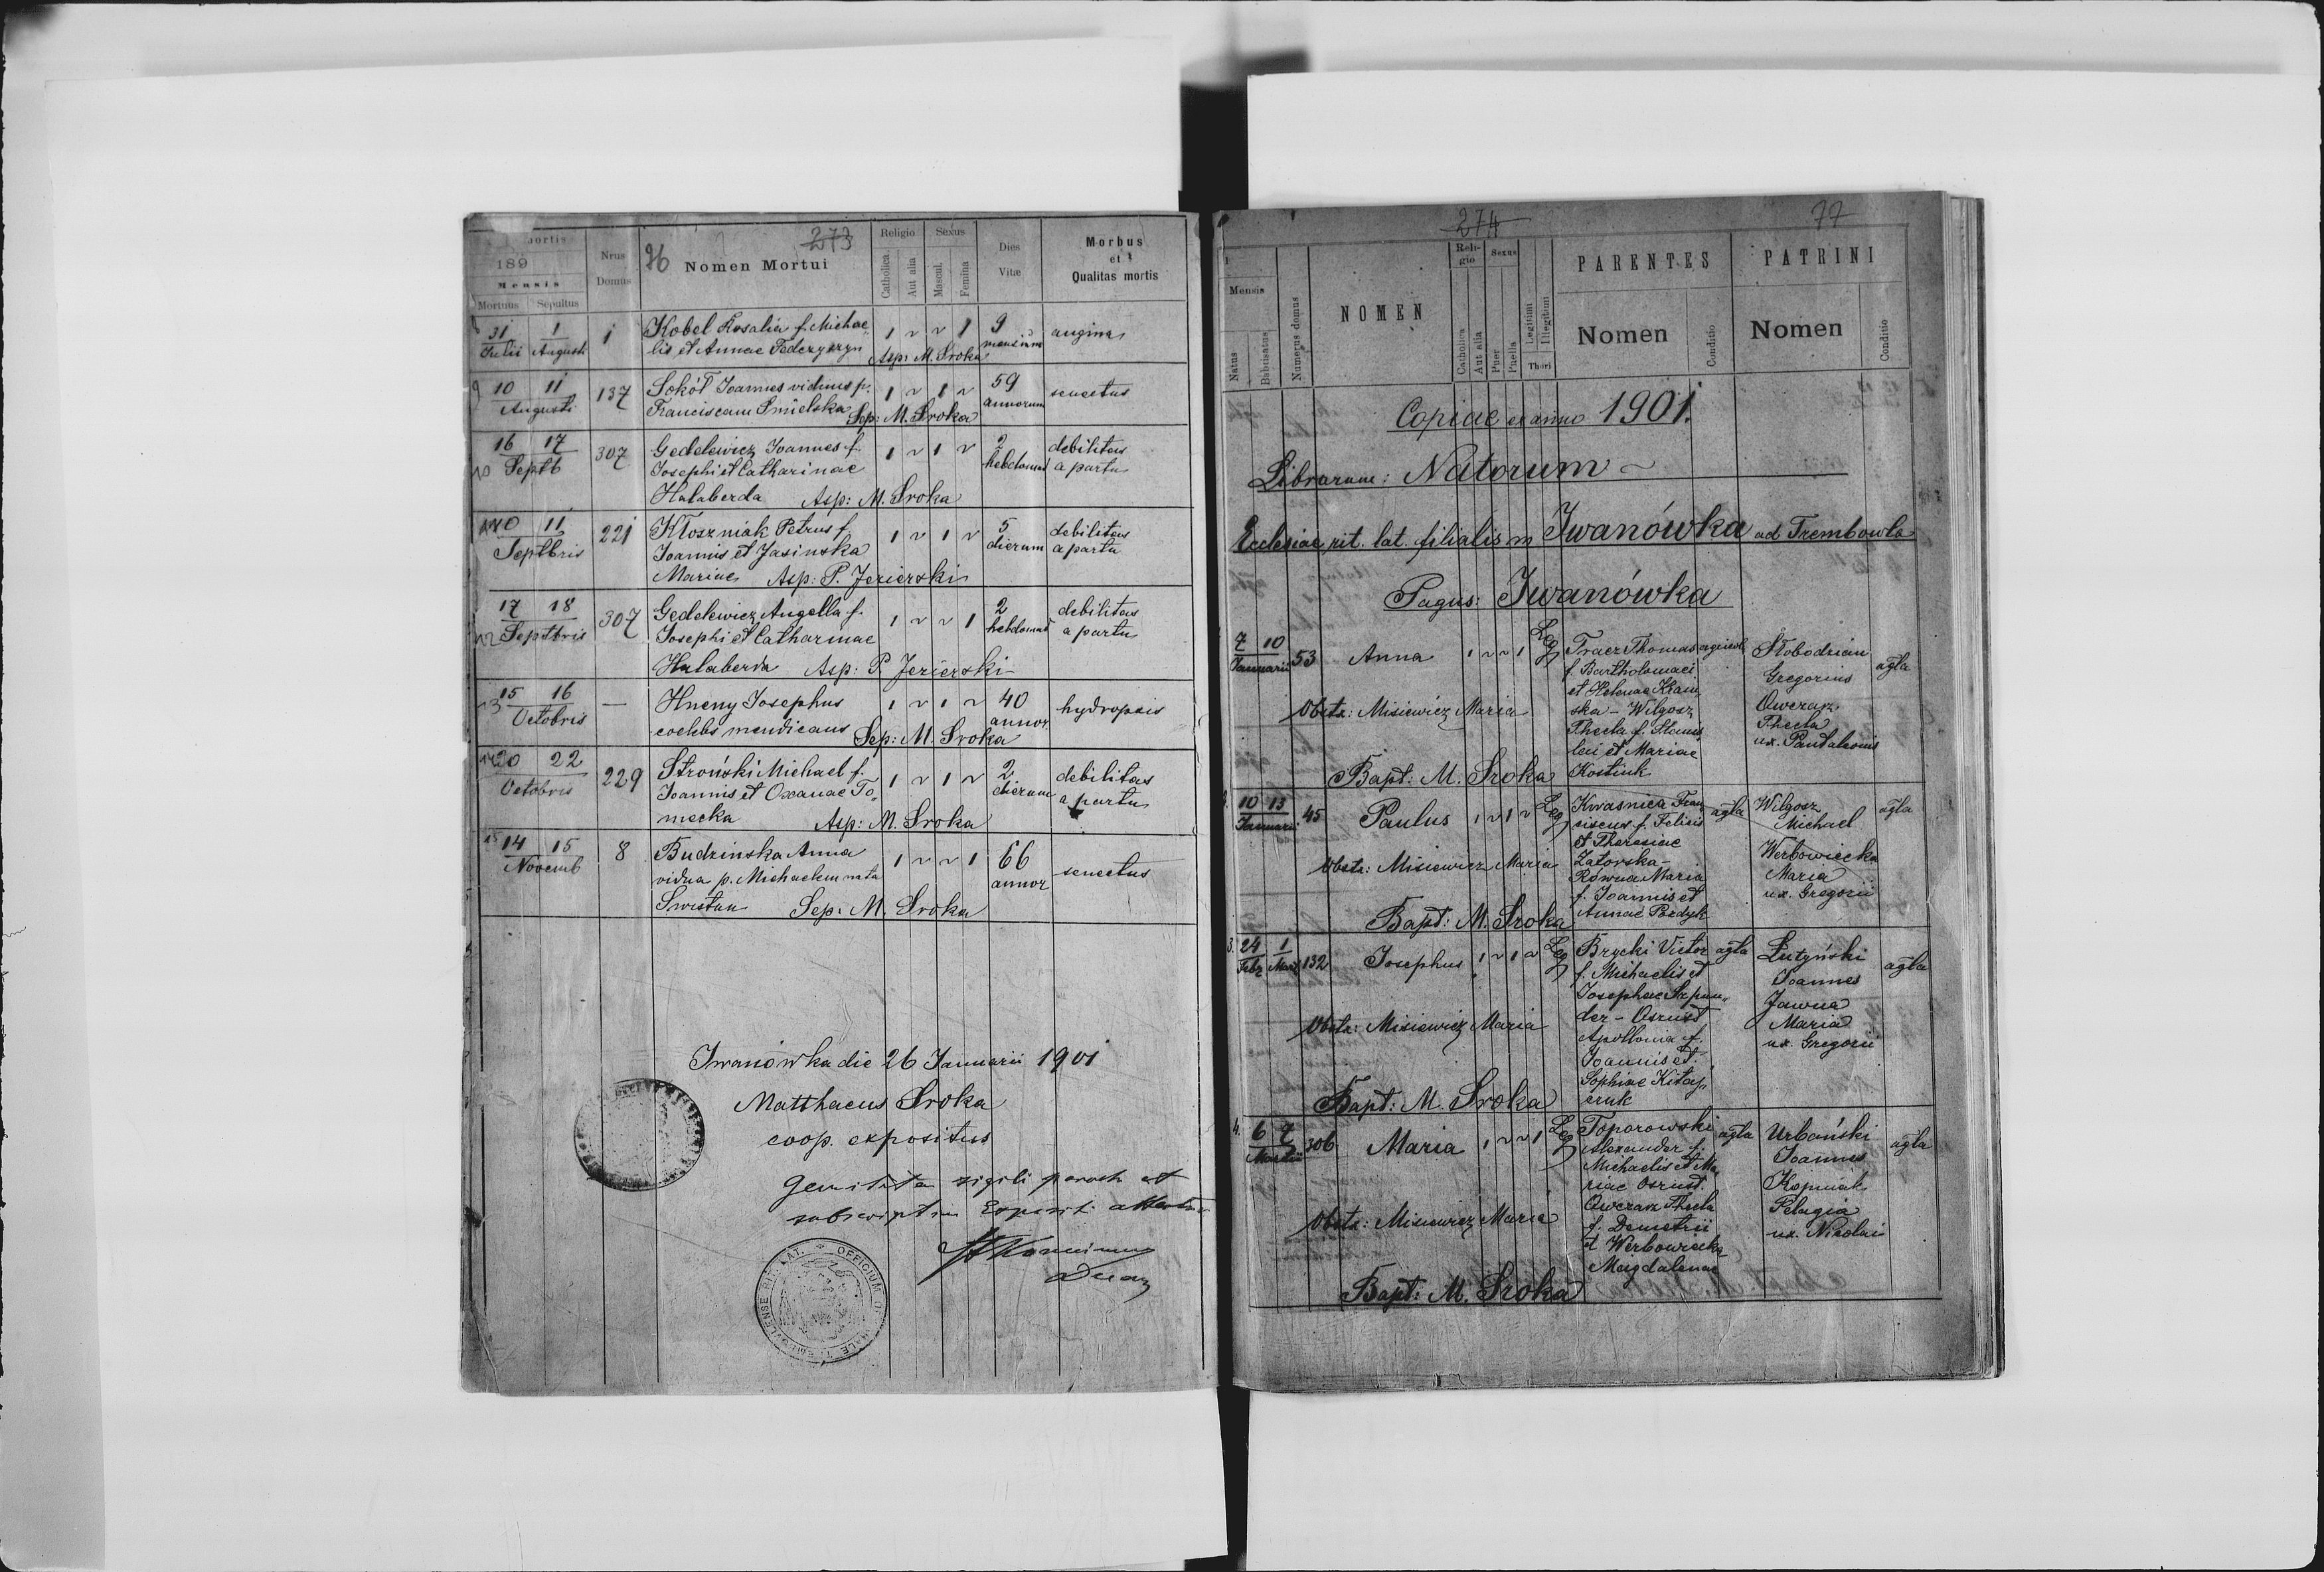 273
76
Mortis
189
Mensis
Mortuus Sepultus
Nrus Domus
Nomen Mortui
Religio
Catholica
Aut alia
Sexus
Mascul.
Femina
Dies Vitae
Morbus
et
Qualitas mortis
31 1
Julii Augusti
1
Kobel Rosalia f. Michae
lis et Annae Fedczyszyn
Asp: M. Sroka
1 ~ ~ 1
9
mensium
angina
9 10 11
Augusti
137
Sokół Joannes viduus p.
Franciscam Smielska Sep: M. Sroka
1 ~ 1 ~
59
annorum
senectus
10 16 17
Septb
307
Gedelewicz Joannes f.
Josephi et Catharinae
Halaberda Asp: M. Sroka
1 ~ 1 ~
2
hebdomad
debilitas
a partu
10 11
Septbris
221
Kłoszniak Petrus f.
Joannis et Jasinska
Mariae Asp: P. Jezierski
1 ~ 1 ~
5
dierum
debilitas
a partu
12 17 18
Septbris
307
Gedelewicz Angella f.
Josephi et Catharinae
Halaberda Asp: P. Jezierski
1 ~ ~ 1
2
hebdomad
debilitas
a partu
13 15 16
Octobris
—
Hneny Josephus
coelebs mendicans Sep: M. Sroka
1 ~ 1 ~
40
annor.
hydropsis
14 20 22
Octobris
229
Stroński Michael f.
Joannis et Oxanae To-
mecka Asp: M. Sroka
1 ~ 1 ~
2
dierum
debilitas
a partu
15 14 15
Novemb
8
Budzinska Anna
vidua p. Michaelem nata
Swistun Sep: M. Sroka
1 ~ ~ 1
66
annor
senectus
Iwanówka die 26 Januarii 1901
Matthaeus Sroka
coop. expositus
sigili paroch et
Exposit:
OFFICIUM RIT. LAT.
274
77
Mensis
Natus
Babtisatus
Numerus domus
NOMEN
Reli-
gio
Catholica
Aut alia
Sexus
Puer
Puella
Legitimi
Illegitimi
Thori
PARENTES
Nomen
Conditio
PATRINI
Nomen
Conditio
Copiae ex anno 1901.
Librorum: Natorum ~
Ecclesiae rit. lat. filialis in Iwanówka ad Trembowla
Pagus: Iwanówka
7 10
Januarii
53
Anna
1 ~ ~ 1
Leg
Tracz Thomas agricol.
f. Bartholomaei
et Helenae Krain
ska - Wilgosz
Thecla f. Stanis
lai et Mariae
Kostiuk
Słobodzian
Gregorius
Owczar
Thecla
ux. Pantaleonis
agła
Obstx: Misiewicz Maria
Bapt: M. Sroka
2. 10 13
Januarii
45
Paulus
1 ~ 1 ~
Leg
Kwasnica Fran
siscus f. Felicis
et Theresiae
Zatorska -
Rowna Maria
f. Joannis et
Annae Pozdyk
agła
Wilgosz
Michael
Werbowiecka
Maria
ux. Gregorii
agła
Obstx: Misiewicz Maria
Bapt: M. Sroka
3. 24 1
Febr Mart
132
Josephus
1 ~ 1 ~
Leg
Brycki Victor
f. Michaelis et
Josephae Szpun-
der - Osrust
Apollonia f.
Joannis et
Sophiae Kitaj
czuk
agła
Lutyński
Joannes
Jawna
Maria
ux. Gregorii
agła
Obstx: Misiewicz Maria
Bapt: M. Sroka
4. 6 7
Martii
306
Maria
1 ~ ~ 1
Leg
Toporowski
Alexander f.
Michaelis et Ma
riae Osrust.
Owczar Thecla
f. Demetrii
et Werbowiecka
Magdalenae
agła
Urbański
Joannes
Kopniak
Pelagia
ux. Nicolai
agła
Obstx: Misiewicz Maria
Bapt: M. Sroka